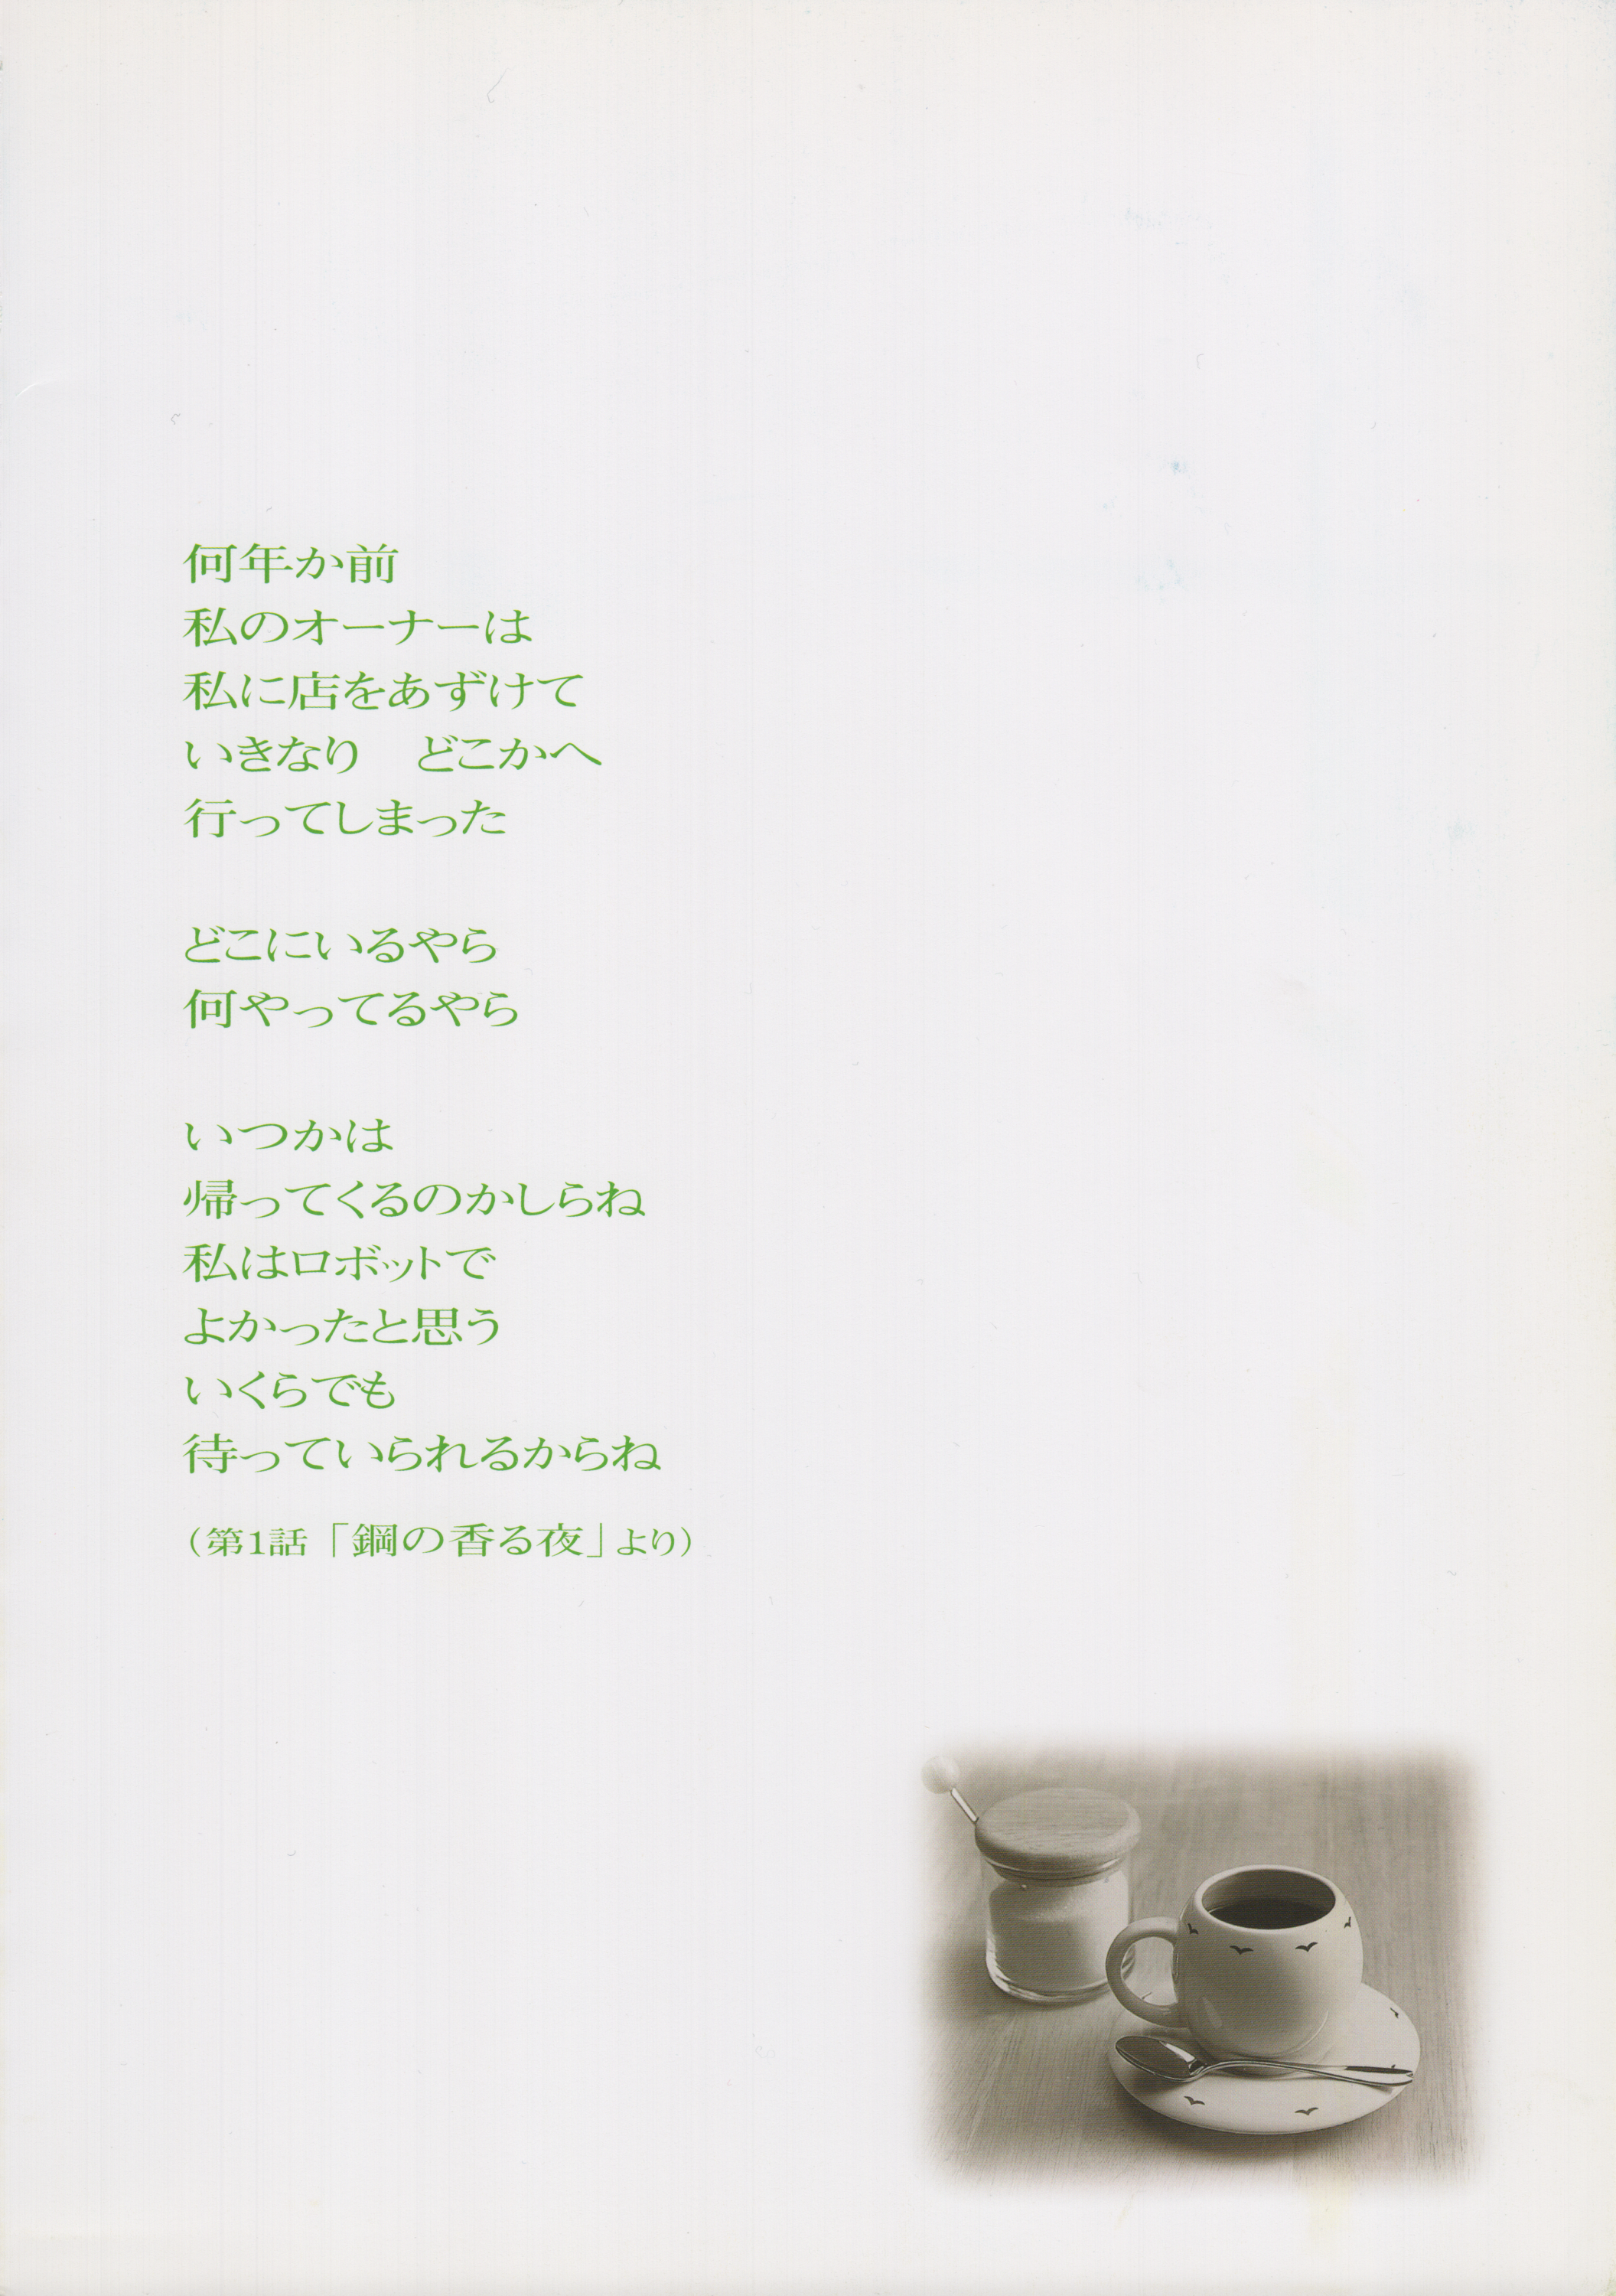 何年か前
私のオーナーは
私に店をあずけて
いきなり　どこかへ
行ってしまった
どこにいるやら
何やってるやら
いつかは
帰ってくるのかしらね
私はロボットで
よかったと思う
いくらでも
待っていられるからね
（第1話「鋼の香る夜」より）